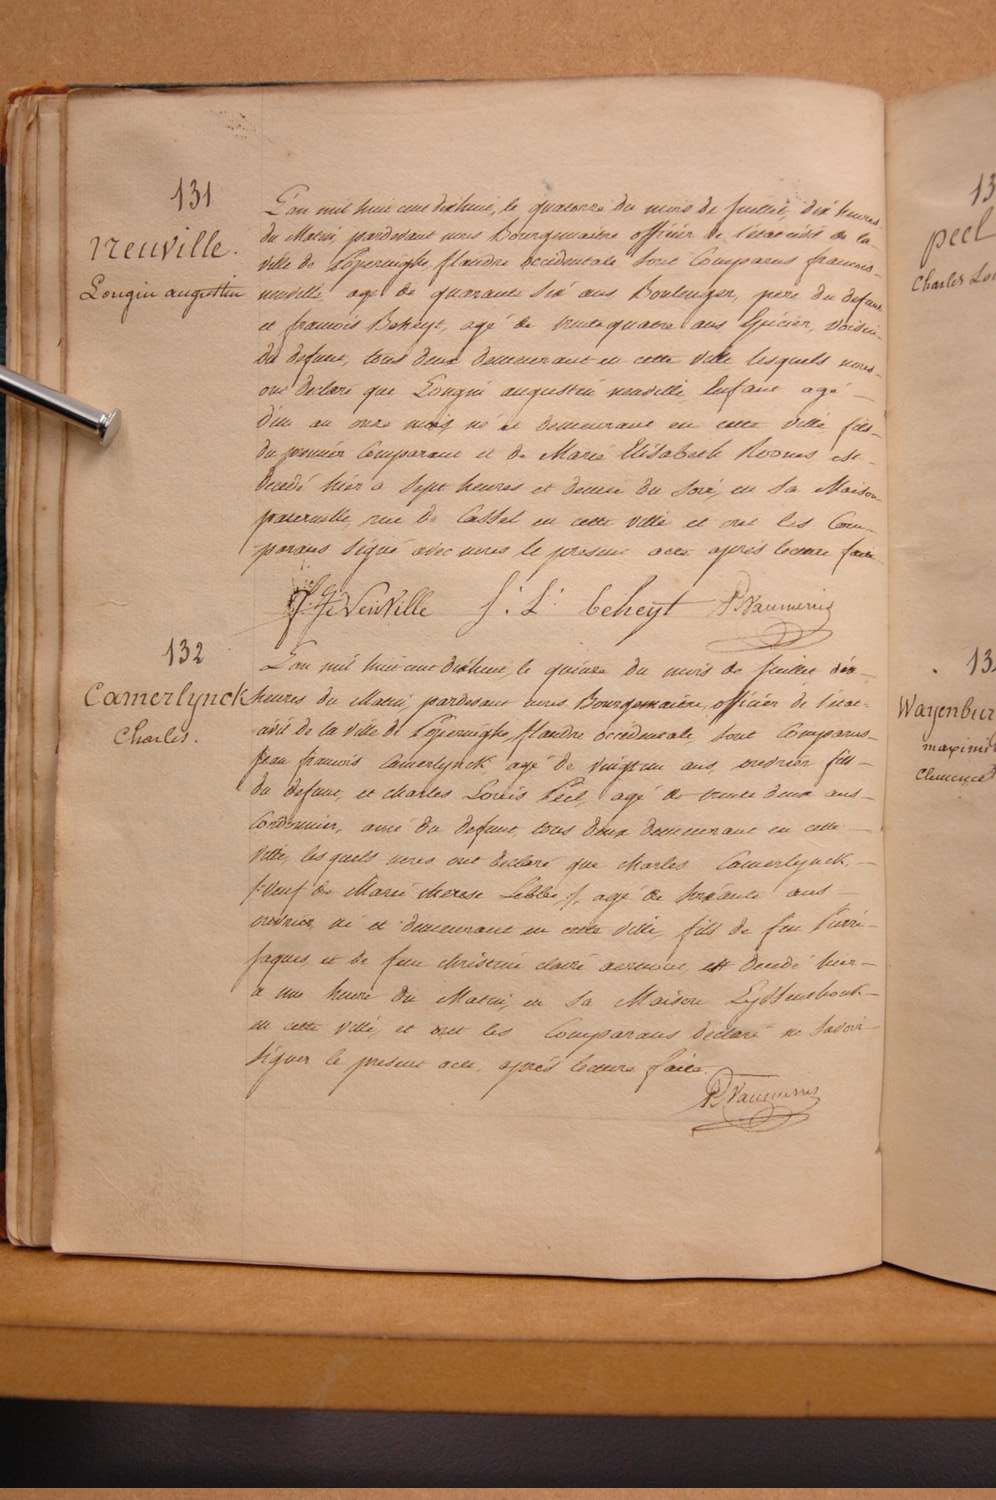 131
neuville.
Longin augustin
L'an mil huit cent dixhuit, le quatorze du mois de Juillet, dix heures
du Matin, pardevant nous Bourguemaitre officier de l'état civil de la
ville de Poperinghe, flandre occidentale sont Comparus francois
neuville, agé de quarante six ans Boulenger, pere du defunt
et francois Beheyt, agé de trente quatre ans Epicier, voisin
du defunt, tous deux demeurant en cette ville lesquels nous
ont declaré que Longin augustin neuville, Enfant agé
d'un an onze mois, né et demeurant en cette ville fils
du premier Comparant et de Marie Elisabeth est
decedé hier a sept heures et demie du soir, en sa Maison
paternelle, rue de Cassel en cette ville et ont les Com-
parans signé avec nous le present acte après lecture faite
NeuVille f: L: beheyt
132
Camerlynck
Charles.
L'an mil huit cent dixhuit, le quinze du mois de Juillet dix
heures du Matin, pardevant nous Bourgemaitre, officier de l'état
civil de la ville de Poperinghe, flandre occidentale, sont Comparus
Jean francois Camerlynck, agé de vingt un ans, ouvrier fils
du defunt, et charles Louis Peel, agé de trente deux ans
Cordonnier, ami du defunt, tous deux demeurant en cette
ville, lesquels nous ont declaré que charles Camerlynck,
veuf de Marie therese agé de soixante ans
ouvrier, né et demeurant en cette ville, fils de feu Pierre
Jaques et de feu christine claire est decedé hier
a une heure du Matin, en sa Maison
en cette ville, et ont les Comparans declaré ne savoir
signer le present acte, après lecture faite.
13
peel
Charles Lou
13
Wayenbur
maximi
Clemence